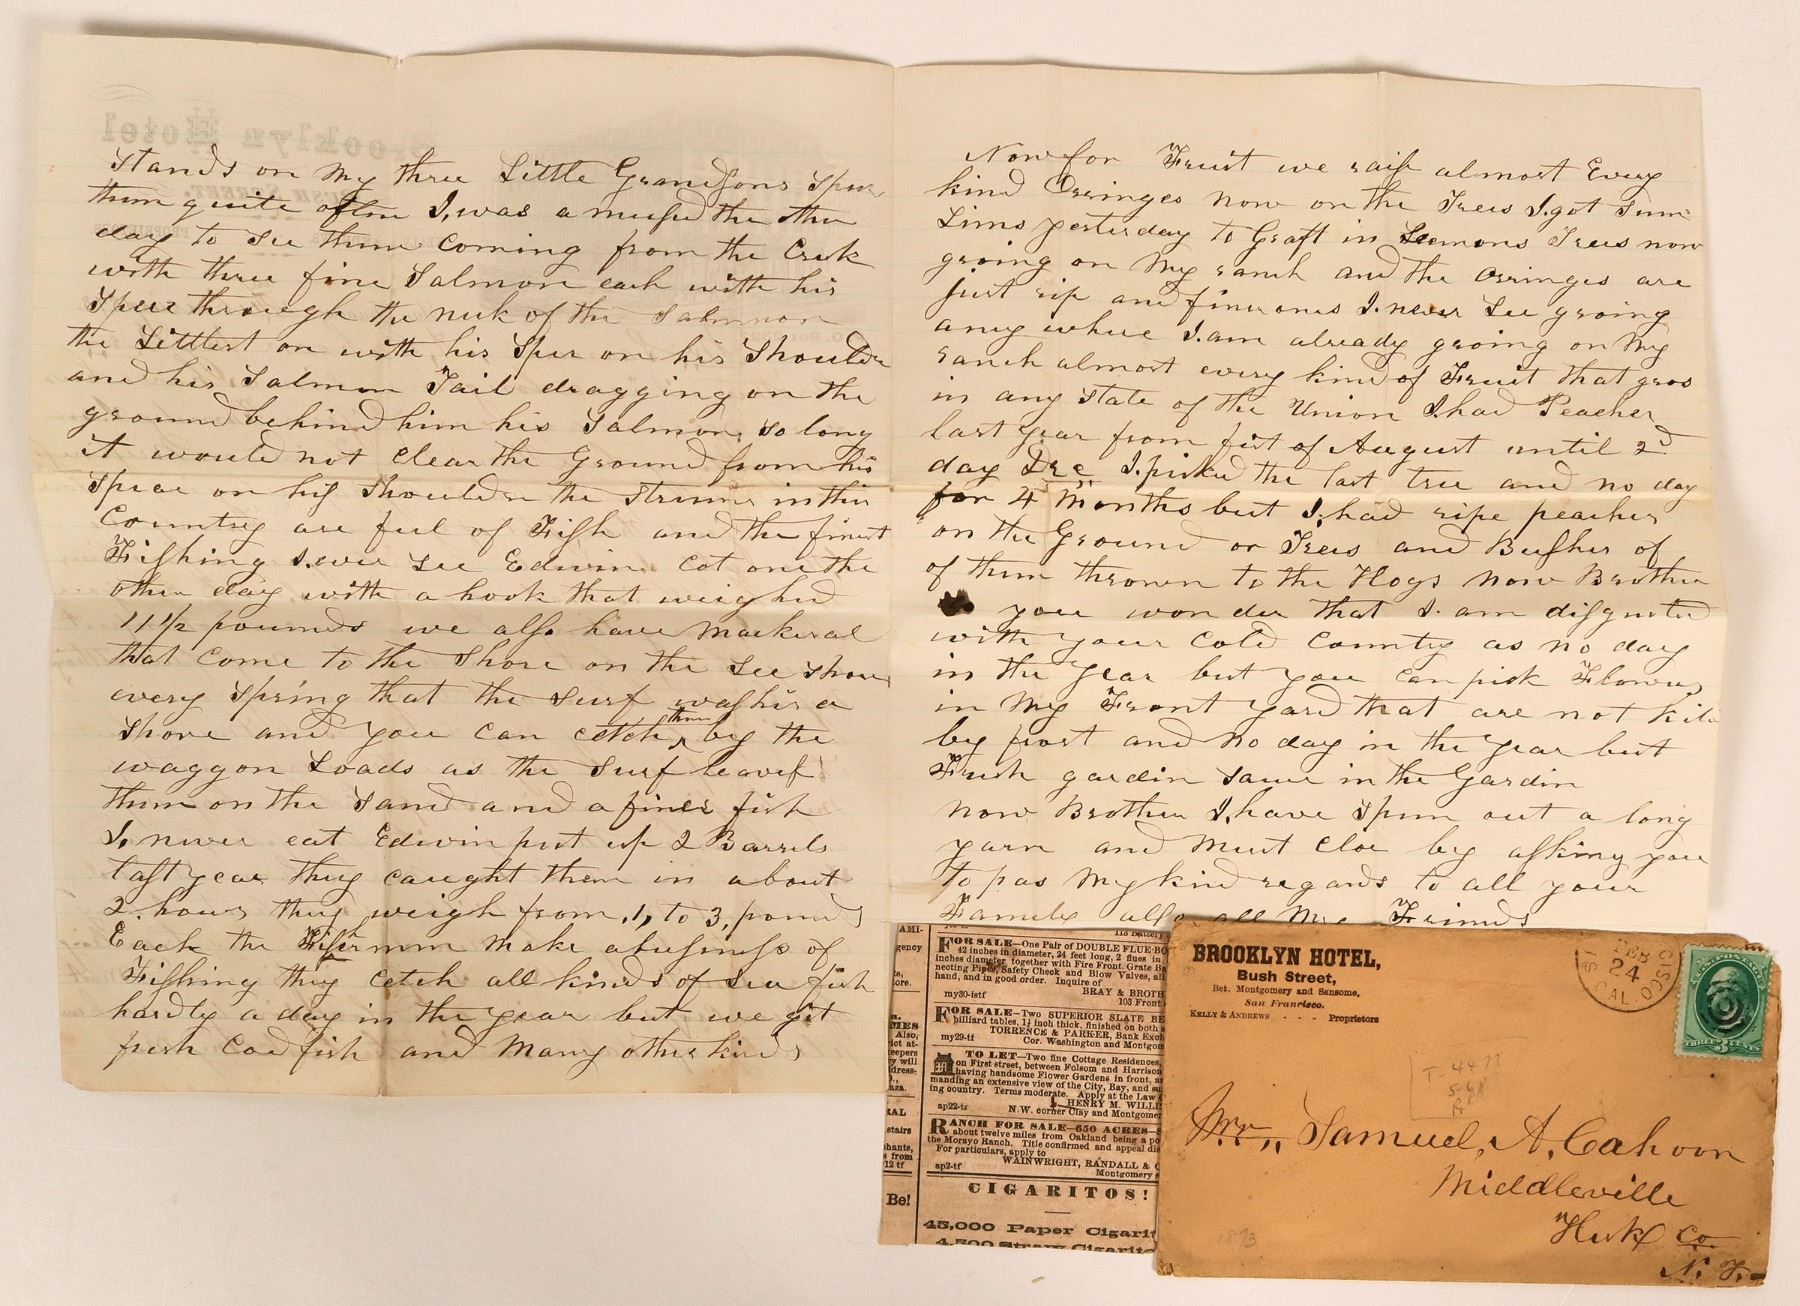 Brooklyn Hotel
BUSH STREET,
stands on my three Little Grandsons Spear
them quite often I, was amused the other
day to see them Coming from the Creek
with three fine Salmon each with his
Spear through the neck of the Salmon
the Littlest on with his Sper on his Shoulder
and his Salmon Tail dragging on the
ground behind him his Salmon, so long
it would not clear the Ground from his
Spear on his Shoulder the Streams in this
Country are ful of Fish and the finest
Fishing I ever see Edwin Cot one the
other day with a hook that weighed
11 1/2 pounds we also have Mackeral
that Come to the Shore on the See Shore
every Spring that the Surf washes a
Shore and you Can cetch them by the
waggon Loads as the Surf leaves
them on the Sand and a finer fish
I, never eat Edwin put up 2 Barrels
last year they caught them in about
2. hours they weigh from, 1, to 3, pounds
Each the Fishermen Make abusiness of
Fishing they Cetch all kinds of Sea fish
hardly a day in the year but we git
fresh Codfish and Many other kinds
Now for Fruit we rais almost Every
kind Orringes now on the Trees I.got Sum
Lims yesterday to Graft in Lemons Trees now
groing on My ranch and the Orringes are
just rip and finer ones I.never See groing
any where I.am already groing on My
ranch almost every kind of Fruit that gros
in any State of the Union I.had Peaches
last year from fist of August until 2d
day Dec I.picked the last tree and no day
for 4 Months but I.had ripe peaches
on the Ground or Trees and Bushes of
of them thrown to the Hogs Now Brother
you wonder that I. am disgusted
with your Cold Country as no day
in the year but you Can pick Flowers
in My Front Yard that are not kild
by frost and No day in the year but
Fresh gardin Sauce in the Gardin
Now Brother I.have Spun out a long
yarn and Must Close by asking you
to pas My kind regards to all your
Family also all My Friends
AMI-
gency
FOR SALE—One Pair of DOUBLE FLUE BO
42 inches in diameter, 24 feet long, 2 flues in
inches diameter together with Fire Front. Grate Ba
necting Pipes, Safety Check and Blow Valves, all
hand, and in good order. Inquire of
BRAY & BROTH
my30-tstf 103 Front
FOR SALE—Two SUPERIOR SLATE BE
billiard tables, 1½ inch thick. finished on both s
TORRENCE & PARKER, Bank Exch
my29-tf Cor. Washington and Montgom
TO LET—Two fine Cottage Residences,
on First street, between Folsom and Harrison
having handsome Flower Gardens in front, an
manding an extensive view of the City, Bay, and su
ing country. Terms moderate. Apply at the Law
HENRY M. WILLI
ap22-tf N.W. corner Clay and Montgome
RANCH FOR SALE—650 ACRES—S
about twelve miles from Oakland being a po
the Morayo Ranch. Title confirmed and appeal dis
For particulars, apply to
WAINWRIGHT, RANDALL & C
ap2-tf Montgomery s
CIGARITOS!
45,000 Paper Cigarit
4,500 Straw Cigarito
Be!
BROOKLYN HOTEL,
Bush Street,
Bet. Montgomery and Sansome,
San Francisco.
KELLY & ANDREWS - - - Proprietors
FEB
24
CAL.
THREE 3 CENTS
T-4477
Mr., Samuel, A, Cahoon
Middleville
Herk Co.
N. Y.
1873